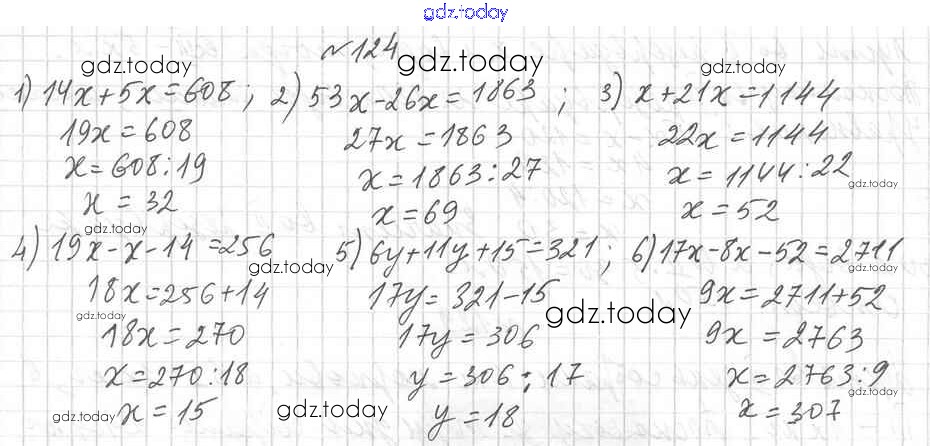 gdz.today
№ 124
gdz.today gdz.today gdz.today
1) 14x+5x=608; 2) 53x-26x=1863; 3) x+21x=1144
19x=608 27x=1863 22x=1144
x=608:19 x=1863:27 x=1144:22
gdz.today
x=32 x=69 x=52
gdz.today
4) 19x-x-14=256 5) 6y+11y+15=321; 6) 17x-8x-52=2711
gdz.today gdz.today
18x=256+14 17y=321-15 9x=2711+52
gdz.today gdz.today
18x=270 17y=306 9x=2763
x=270:18 y=306:17 x=2763:9
gdz.today
x=15 y=18 x=307
gdz.today gdz.today